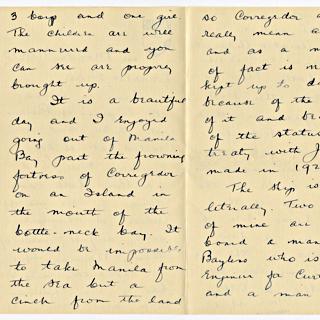 3 boys and one girl.
The children are well
mannered and you
can see are properly
brought up.
It is a beautiful
day and I enjoyed
going out of Manila
Bay past the frowning
fortress of Corregidor
on an Island in
the mouth of the
bottle-neck bay. It
would be impossible
to take Manila from
the sea but a
cinch from the land
so Corregidor
really mean
and as a m
of fact is n
kept up to d
because of the
of it and
of the status
treaty with J
made in 192
The ship is
literally. Two
of mine are
board a man
Bayless who is
Engineer for Cur
and a man